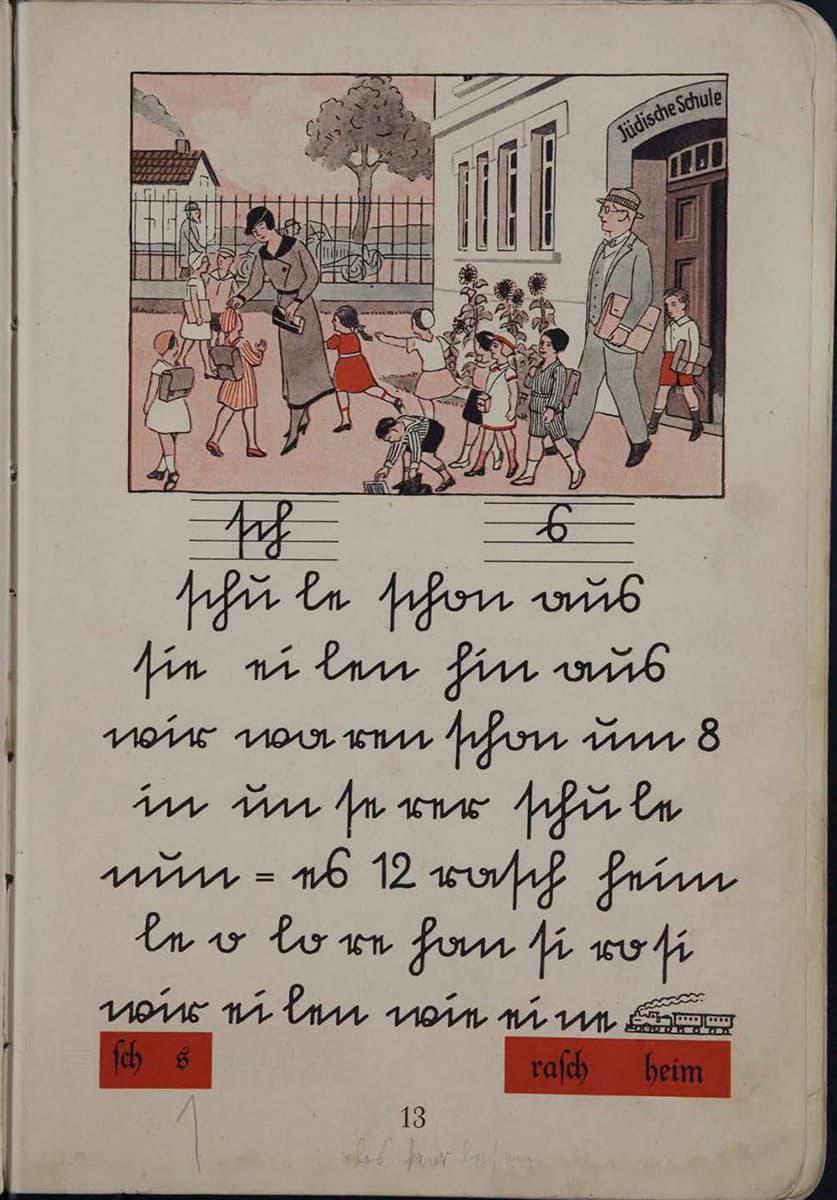 Jüdische Schule
ſch s
ſchu le ſchon aus
ſie ei len hin aus
wir wa ren ſchon um 8
in un ſe rer ſchu le
nun = es 12 raſch heim
le o lo re han ſi ro ſi
wir ei len wie ei ne
ſch s raſch heim
13